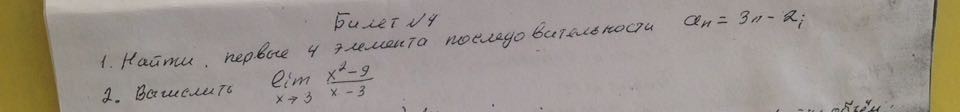 Билет №4
1. Найти первые 4 элемента последовательности aₙ = 3n - 2;
2. Вычислить lim x→3 (x² - 9)/(x - 3)